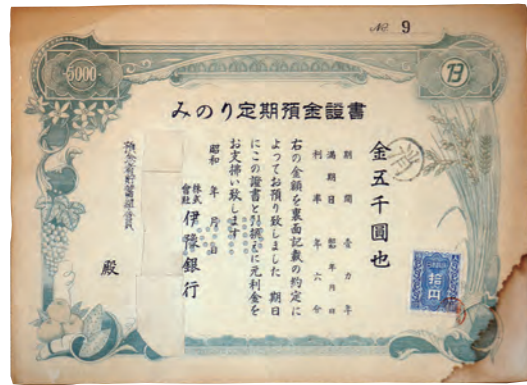 No. 9
5000
みのり定期預金證書
金五千圓也
期間壹カ年
満期日 昭和 年 月 日
利率年六分
右の金額を裏面記載の約定に
よつてお預り致しました 期日
にこの證書と引換に元利金を
お支拂い致します
昭和 年 月 日
株式會社 伊豫銀行
殿
拾円